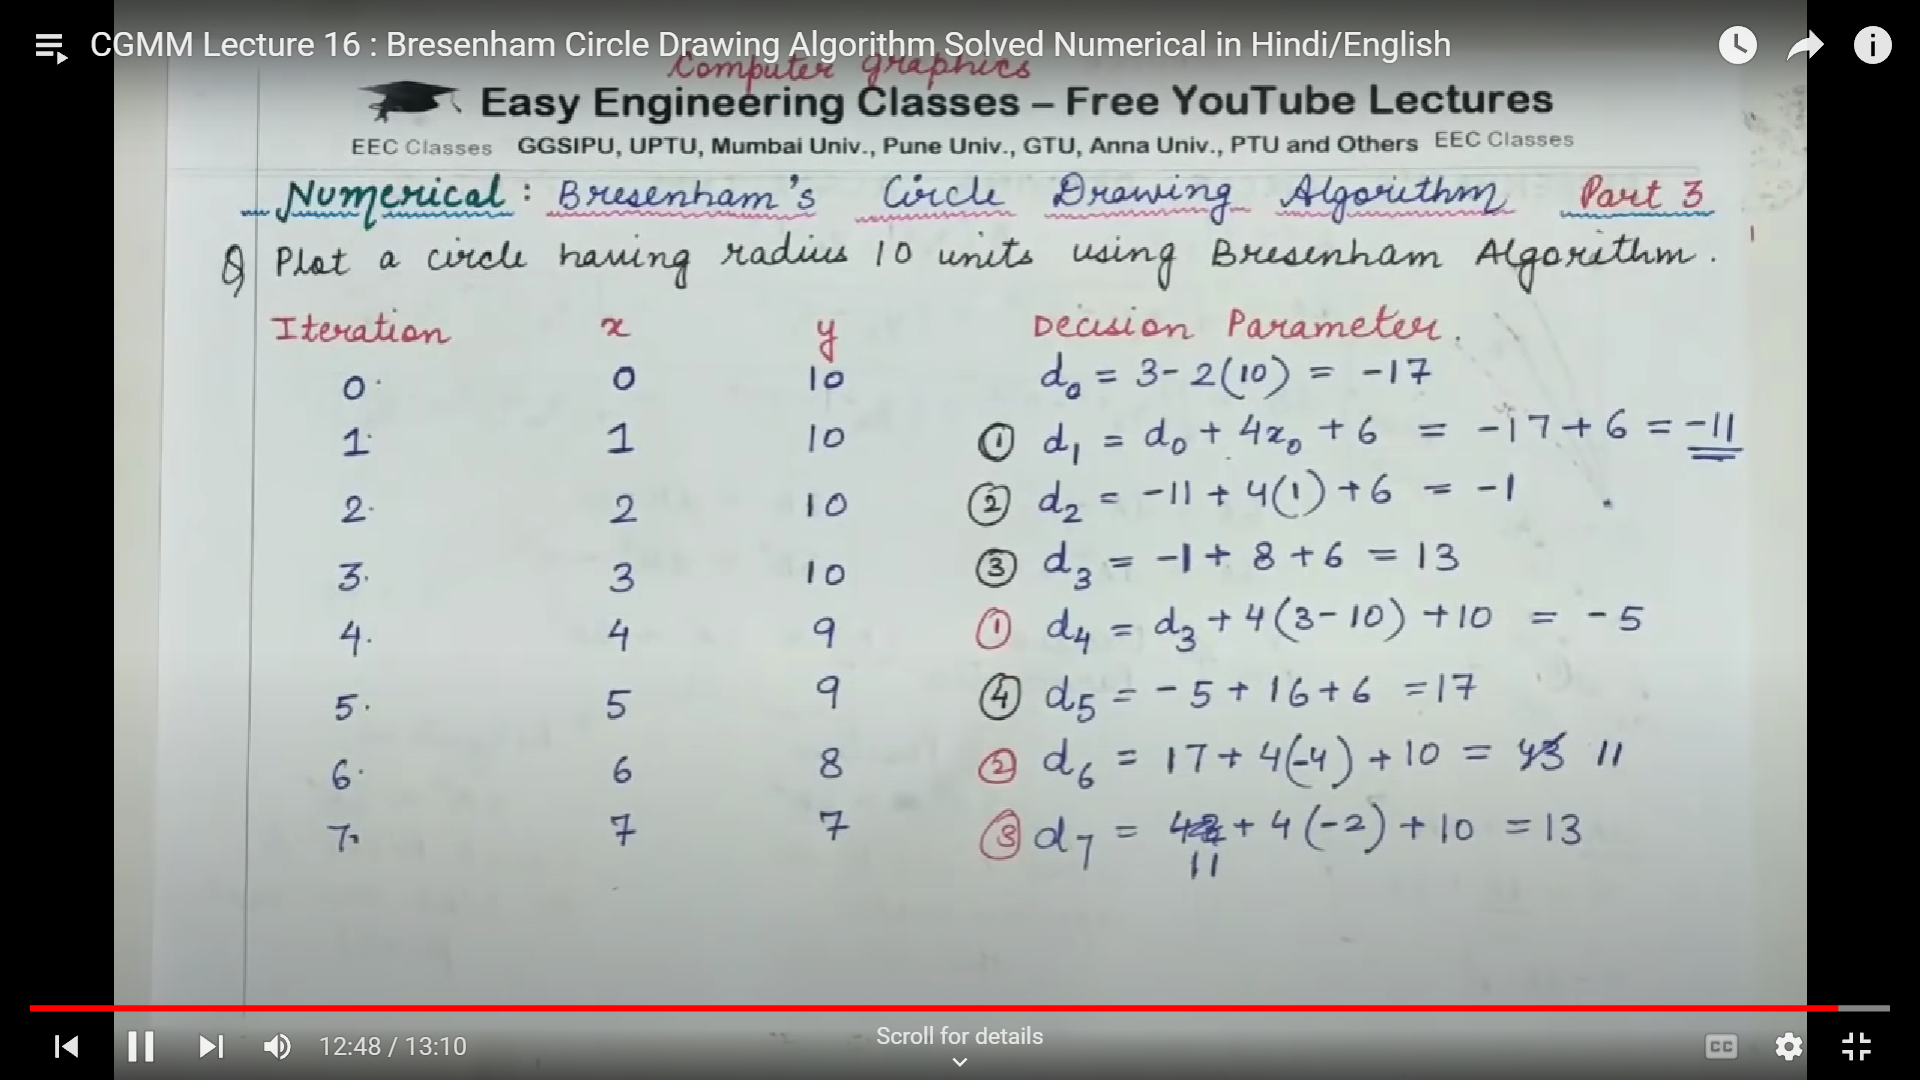 CGMM Lecture 16 : Bresenham Circle Drawing Algorithm Solved Numerical in Hindi/English
Computer graphics
Easy Engineering Classes – Free YouTube Lectures
EEC Classes GGSIPU, UPTU, Mumbai Univ., Pune Univ., GTU, Anna Univ., PTU and Others EEC Classes
Numerical : Bresenham's Circle Drawing Algorithm Part 3
Q Plot a circle having radius 10 units using Bresenham Algorithm.
Iteration x y Decision Parameter.
0. 0 10 d₀ = 3 - 2(10) = -17
1. 1 10 ① d₁ = d₀ + 4x₀ + 6 = -17 + 6 = -11
2. 2 10 ② d₂ = -11 + 4(1) + 6 = -1
3. 3 10 ③ d₃ = -1 + 8 + 6 = 13
4. 4 9 ① d₄ = d₃ + 4(3-10) + 10 = -5
5. 5 9 ④ d₅ = -5 + 16 + 6 = 17
6. 6 8 ② d₆ = 17 + 4(-4) + 10 = 11
7. 7 7 ③ d₇ = + 4(-2) + 10 = 13
11
12:48 / 13:10
Scroll for details
CC